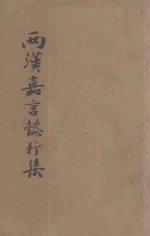 两漢嘉言懿行集